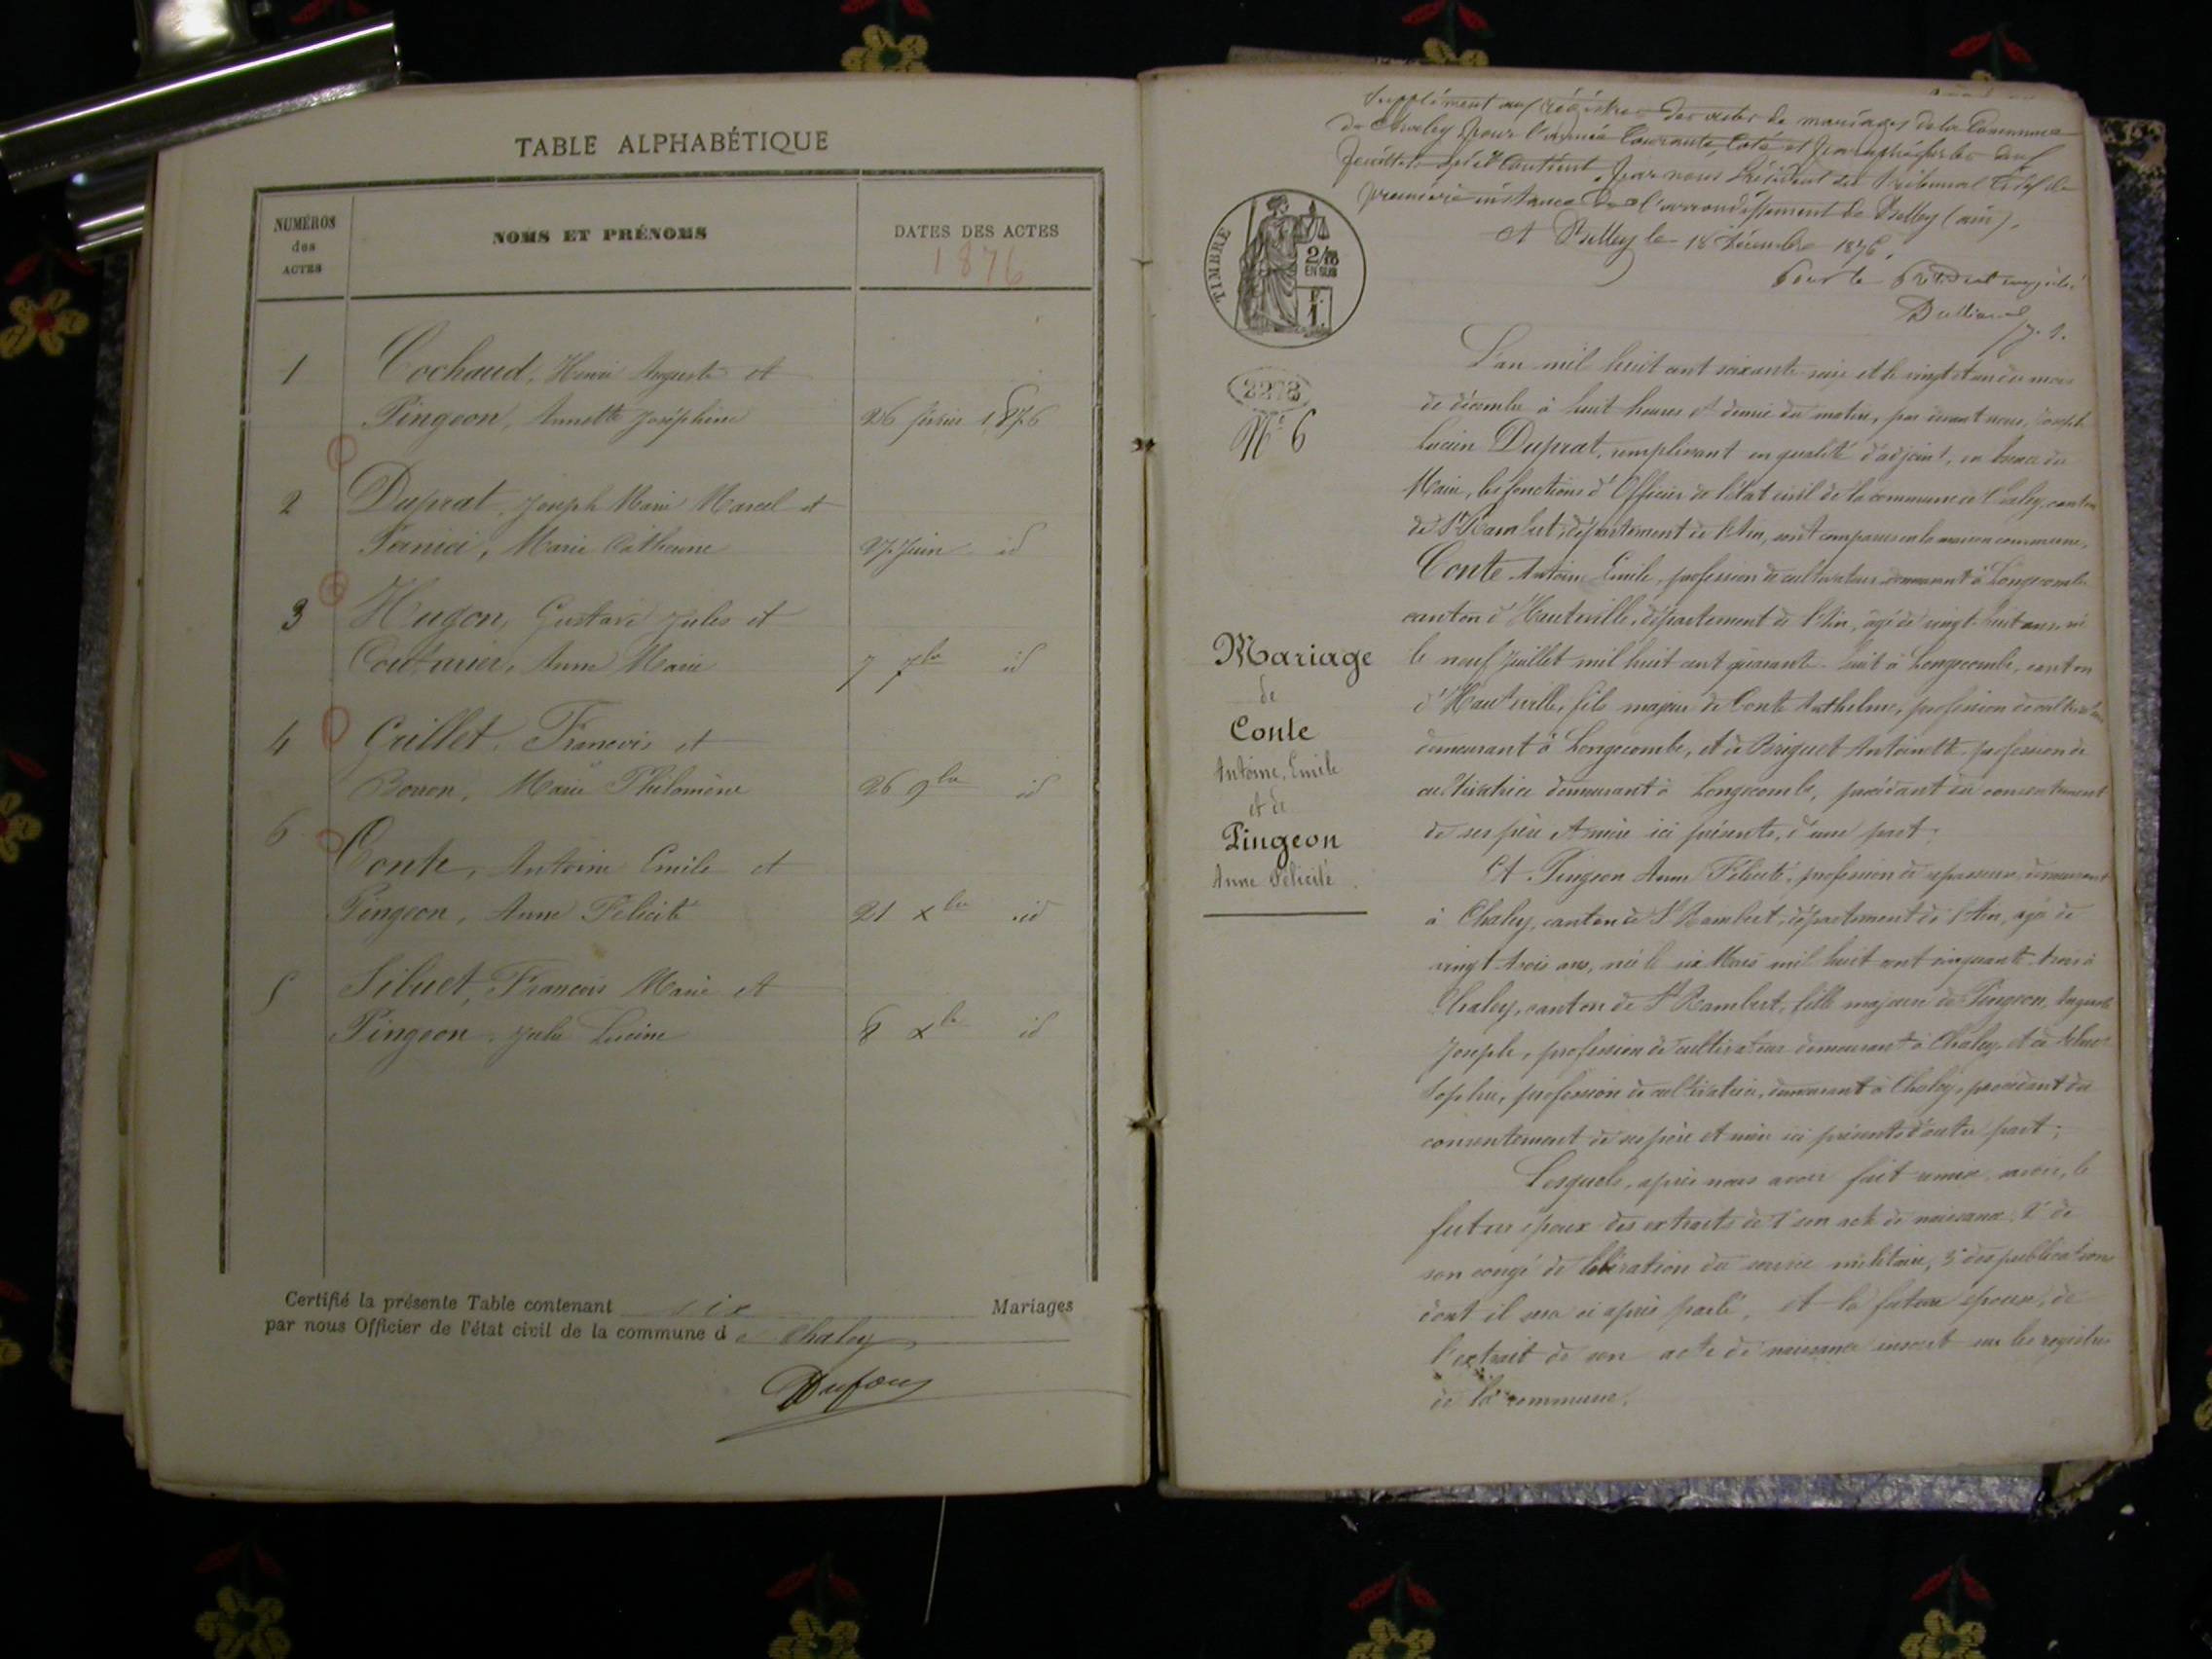 TABLE ALPHABÉTIQUE
NUMÉROS
des
ACTES
NOMS ET PRÉNOMS
DATES DES ACTES
1876
1 Cochaud, Henri Auguste et
Pingeon, Annette Joséphine 26 février 1876
2 Duprat, Joseph Marie Marcel et
Marie Catherine 27 Juin id
3 Hugon, Gustave Jules et
Couturier, Anne Marie 7 7bre id
4 Grillet, François et
Marie Philomène 26 9bre id
6 Conte, Antoine Emile et
Pingeon, Anne Félicité 21 xbre id
5 Siluet, François Marie et
Pingeon, Julie Lucine 8 xbre id
Certifié la présente Table contenant six Mariages
par nous Officier de l'état civil de la commune de Chaley
Supplément aux régistres des actes de mariages de la Commune
de Chaley pour l'année Courante, Coté et paraphé sur les deux
feuillets qu'il Contient, par nous Président du Tribunal Civil de
première instance de l'arrondissement de Belley (ain).
A Belley le 18 Décembre 1876.
Pour le Président empêché
TIMBRE
2/10
EN SUS
F.
1.
2273
N° 6
Mariage
de
Conte
Antoine, Emile
et de
Pingeon
Anne Félicité
L'an mil huit cent soixante seize et le vingt et un du mois
de décembre à huit heures et demie du matin, par devant nous, Joseph
Lucien Duprat, remplissant en qualité d'adjoint, en du
Maire, les fonctions d'Officier de l'état civil de la commune de Chaley, canton
de St Rambert, département de l'Ain, sont comparus en la maison commune,
Conte Antoine Emile, profession de cultivateur, demeurant à Longecombe
canton d'Hauteville, département de l'Ain, âgé de vingt-huit ans, né
le neuf Juillet mil huit cent quarante-huit à Longecombe, canton
d'Hauteville, fils majeur de Conte Anthelme, profession de cultivateur
demeurant à Longecombe, et de Briguet Antoinette profession de
cultivatrice demeurant à Longecombe, procédant du consentement
de ses père et mère ici présents, d'une part;
Et Pingeon Anne Félicité, profession de repasseuse, demeurant
à Chaley, canton de St Rambert, département de l'Ain, âgée de
vingt-trois ans, née le six Mars mil huit cent cinquante-trois à
Chaley, canton de St Rambert, fille majeure de Pingeon, Auguste
Joseph, profession de cultivateur demeurant à Chaley, et de Siluet
Sophie, profession de cultivatrice, demeurant à Chaley, procédant du
consentement de ses père et mère ici présents d'autre part;
Lesquels, après nous avoir fait remise, savoir, le
futur époux des extraits de 1° son acte de naissance, 2° de
son congé de libération du service militaire, 3° des publications
dont il sera ci après parlé, et la future épouse, de
l'extrait de son acte de naissance inscrit sur les registres
de la commune.